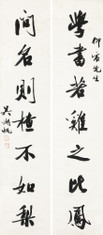 學書若雞之比鳳
先生
問名則樝不如梨
吳湖帆